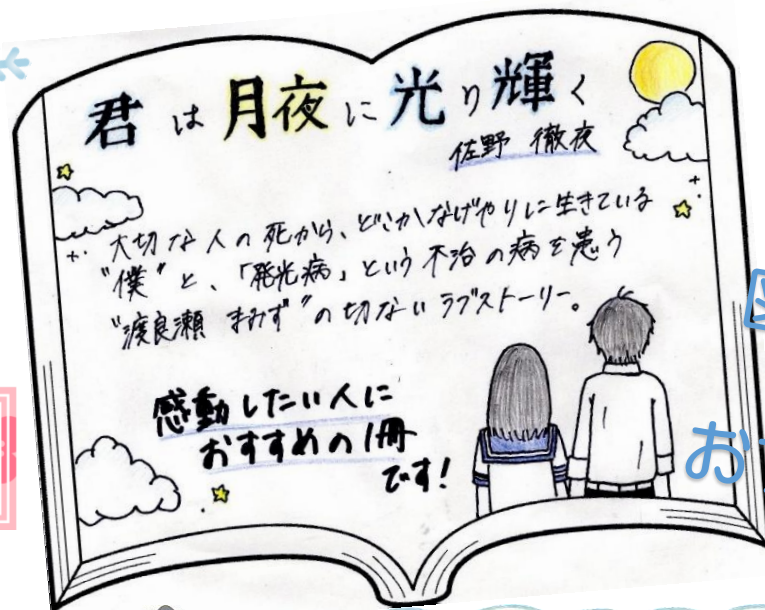 君は月夜に光り輝く
佐野 徹夜
大切な人の死から、どこかなげやりに生きている
"僕"と、「発光病」という不治の病を患う
"渡良瀬 まみず"の切ないラブストーリー。
感動したい人に
おすすめの1冊
です!
お